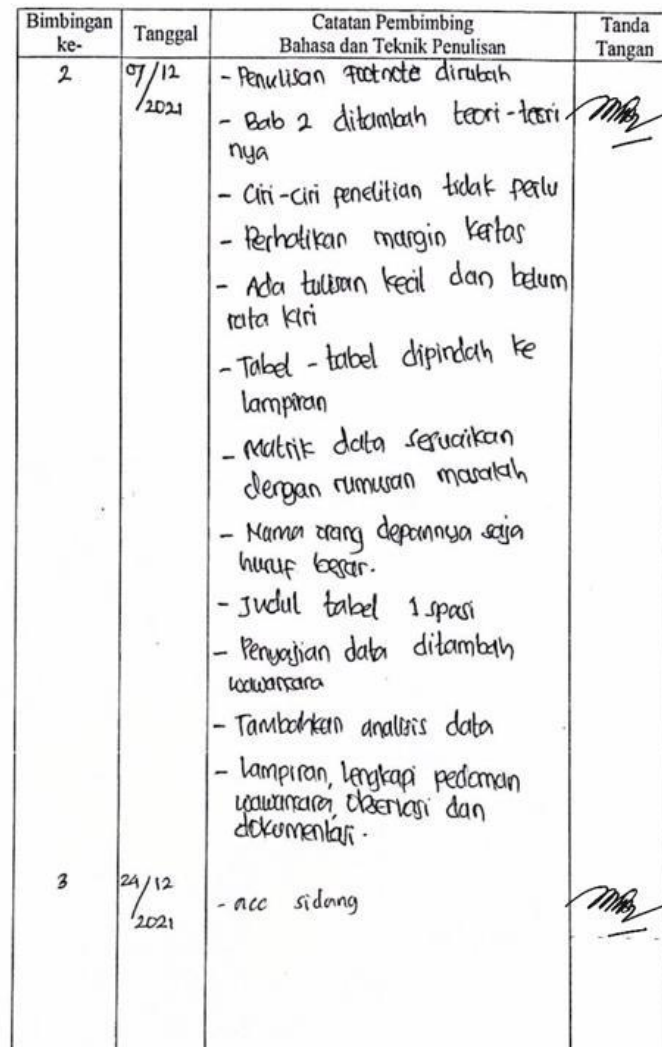 Bimbingan ke- Tanggal Catatan Pembimbing Bahasa dan Teknik Penulisan Tanda Tangan
2 07/12/2021 - Penulisan Footnote dirubah
- Bab 2 ditambah teori-teori
nya
- Ciri-ciri penelitian tidak perlu
- Perhatikan margin kertas
- Ada tulisan kecil dan belum
rata kiri
- Tabel - tabel dipindah ke
lampiran
- Matrik data sesuaikan
dengan rumusan masalah
- Nama orang depannya saja
huruf besar.
- Judul tabel 1 spasi
- Penyajian data ditambah
wawancara
- Tambahkan analisis data
- Lampiran, lengkapi pedoman
wawancara, Observasi dan
dokumentasi.
3 24/12/2021 - acc sidang